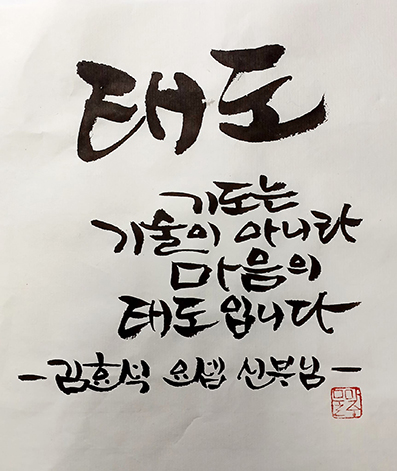 태도
기도는
기술이 아니라
마음의
태도입니다
- 김효석 요셉 신부님 -